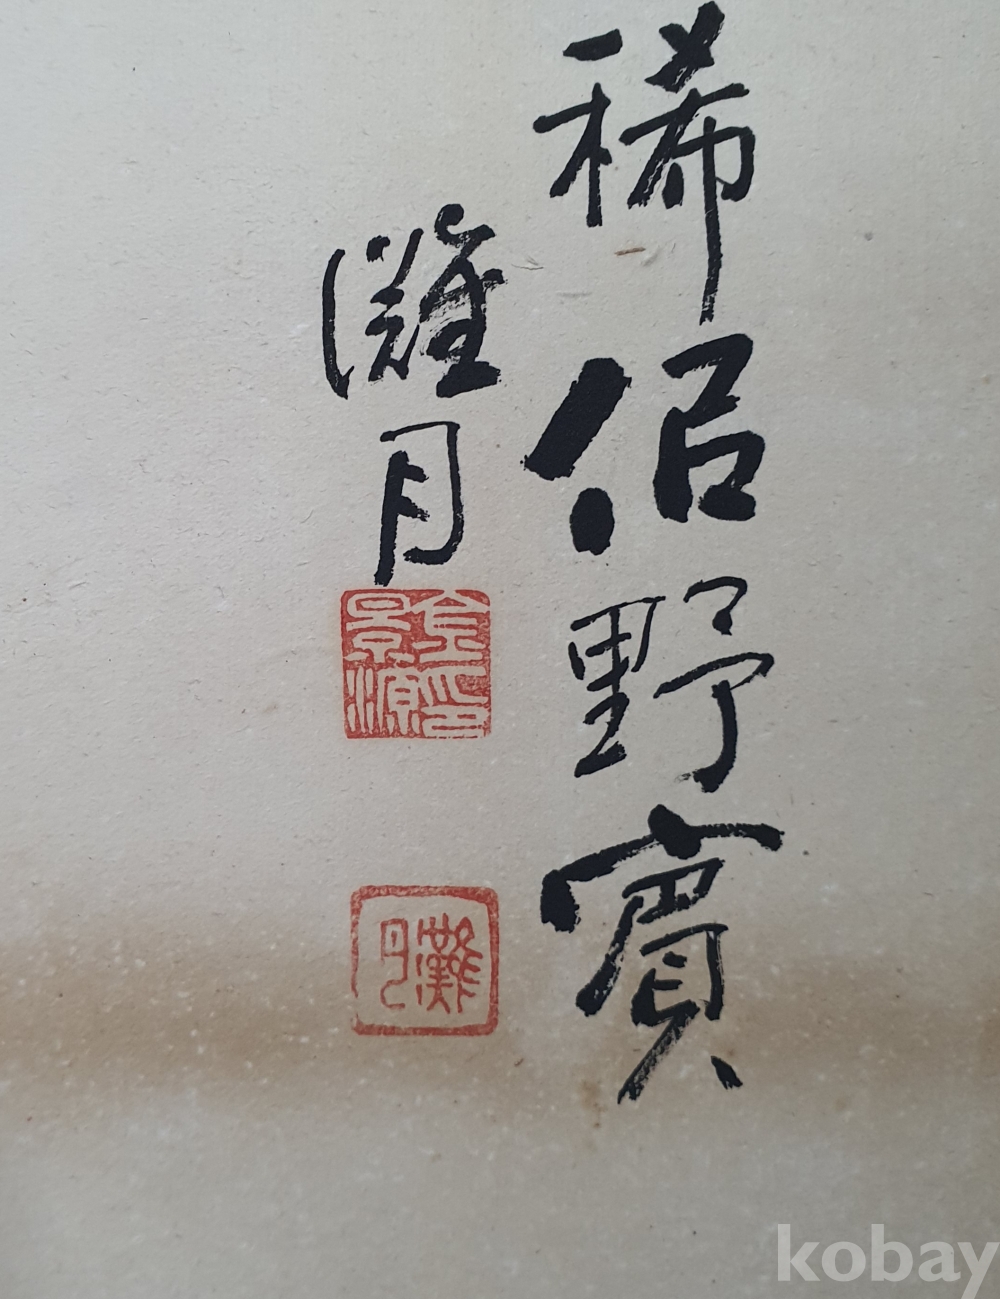 稀侶野賓
灘月
金景源印
灘月
kobay